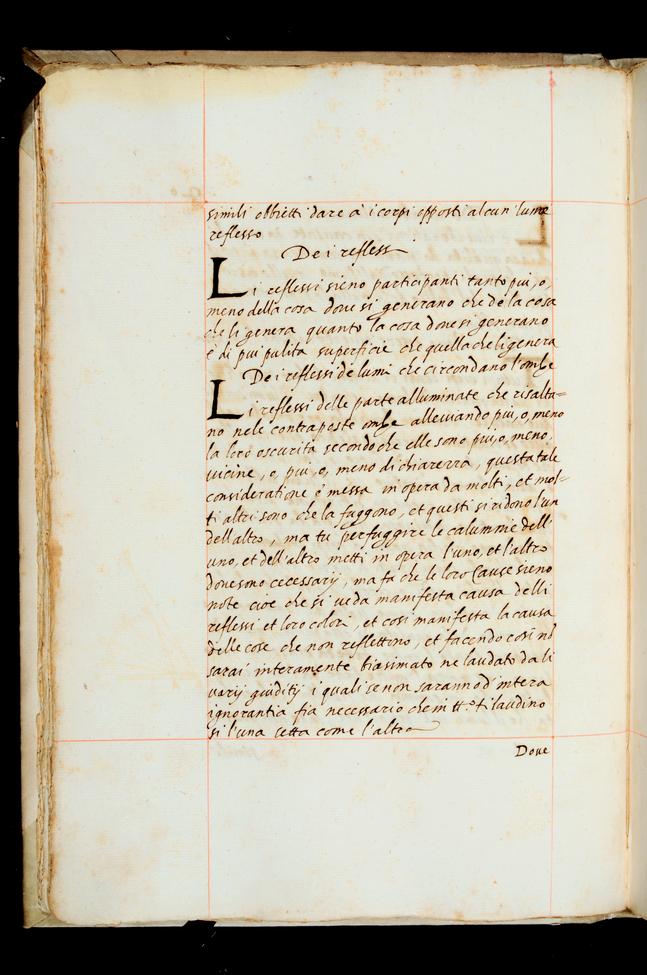 simili obbietti dare à i corpi opposti alcun lume
reflesso
De i refless
Li reflessi sieno participanti tanto piu, o,
meno della cosa doue si generano che de la cosa
che li genera quanto la cosa doue si generano
è di piu pulita superficie che quella che li genera
De i reflessi de lumi che circondano l'ombe
Li reflessi delle parte alluminate che risalta=
no nele contraposte ombe alleuiando piu, o, meno
la loro oscurita secondo che elle sono piu, o, meno,
uicine, o, piu, o, meno di chiarezza, questa tale
consideratione è messa in opera da molti, et mol=
ti altri sono che la fuggono, et questi si ridono l'un
dell'altro, ma tu per fuggire le calumnie dell'
uno, et dell'altro metti in opera l'uno, et l'altro
doue sono cecessarij, ma fa che le loro cause sieno
note cioe che si ueda manifesta causa delli
reflessi et loro colori, et cosi manifesta la causa
delle cose che non reflettono, et facendo cosi nō
sarai interamente biasimato ne laudato da li
uarij giuditij i quali se non saranno d'intera
ignorantia fia necessario che in tt.o ti laudino
si l'una setta come l'altra
Doue